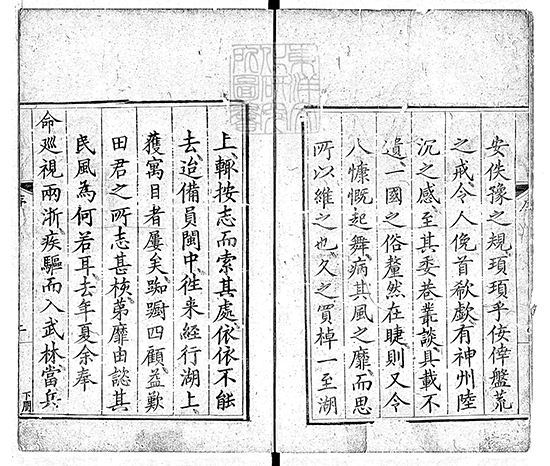 安佚豫之規瑣瑣乎侫倖盤荒
之戒令人俛首欷歔有神州陸
沉之感至其委巷叢談具載不
遺一國之俗釐然在睫則又令
人慷慨起舞病其風之靡而思
所以維之也久之買棹一至湖
上輒按志而索其處依依不能
去迨備員閩中徃来經行湖上
獲寓目者屢矣踟躕四顧益歎
田君之所志甚核第靡由諗其
民風為何若耳去年夏余奉
命巡視兩浙疾驅而入武林當兵
下周